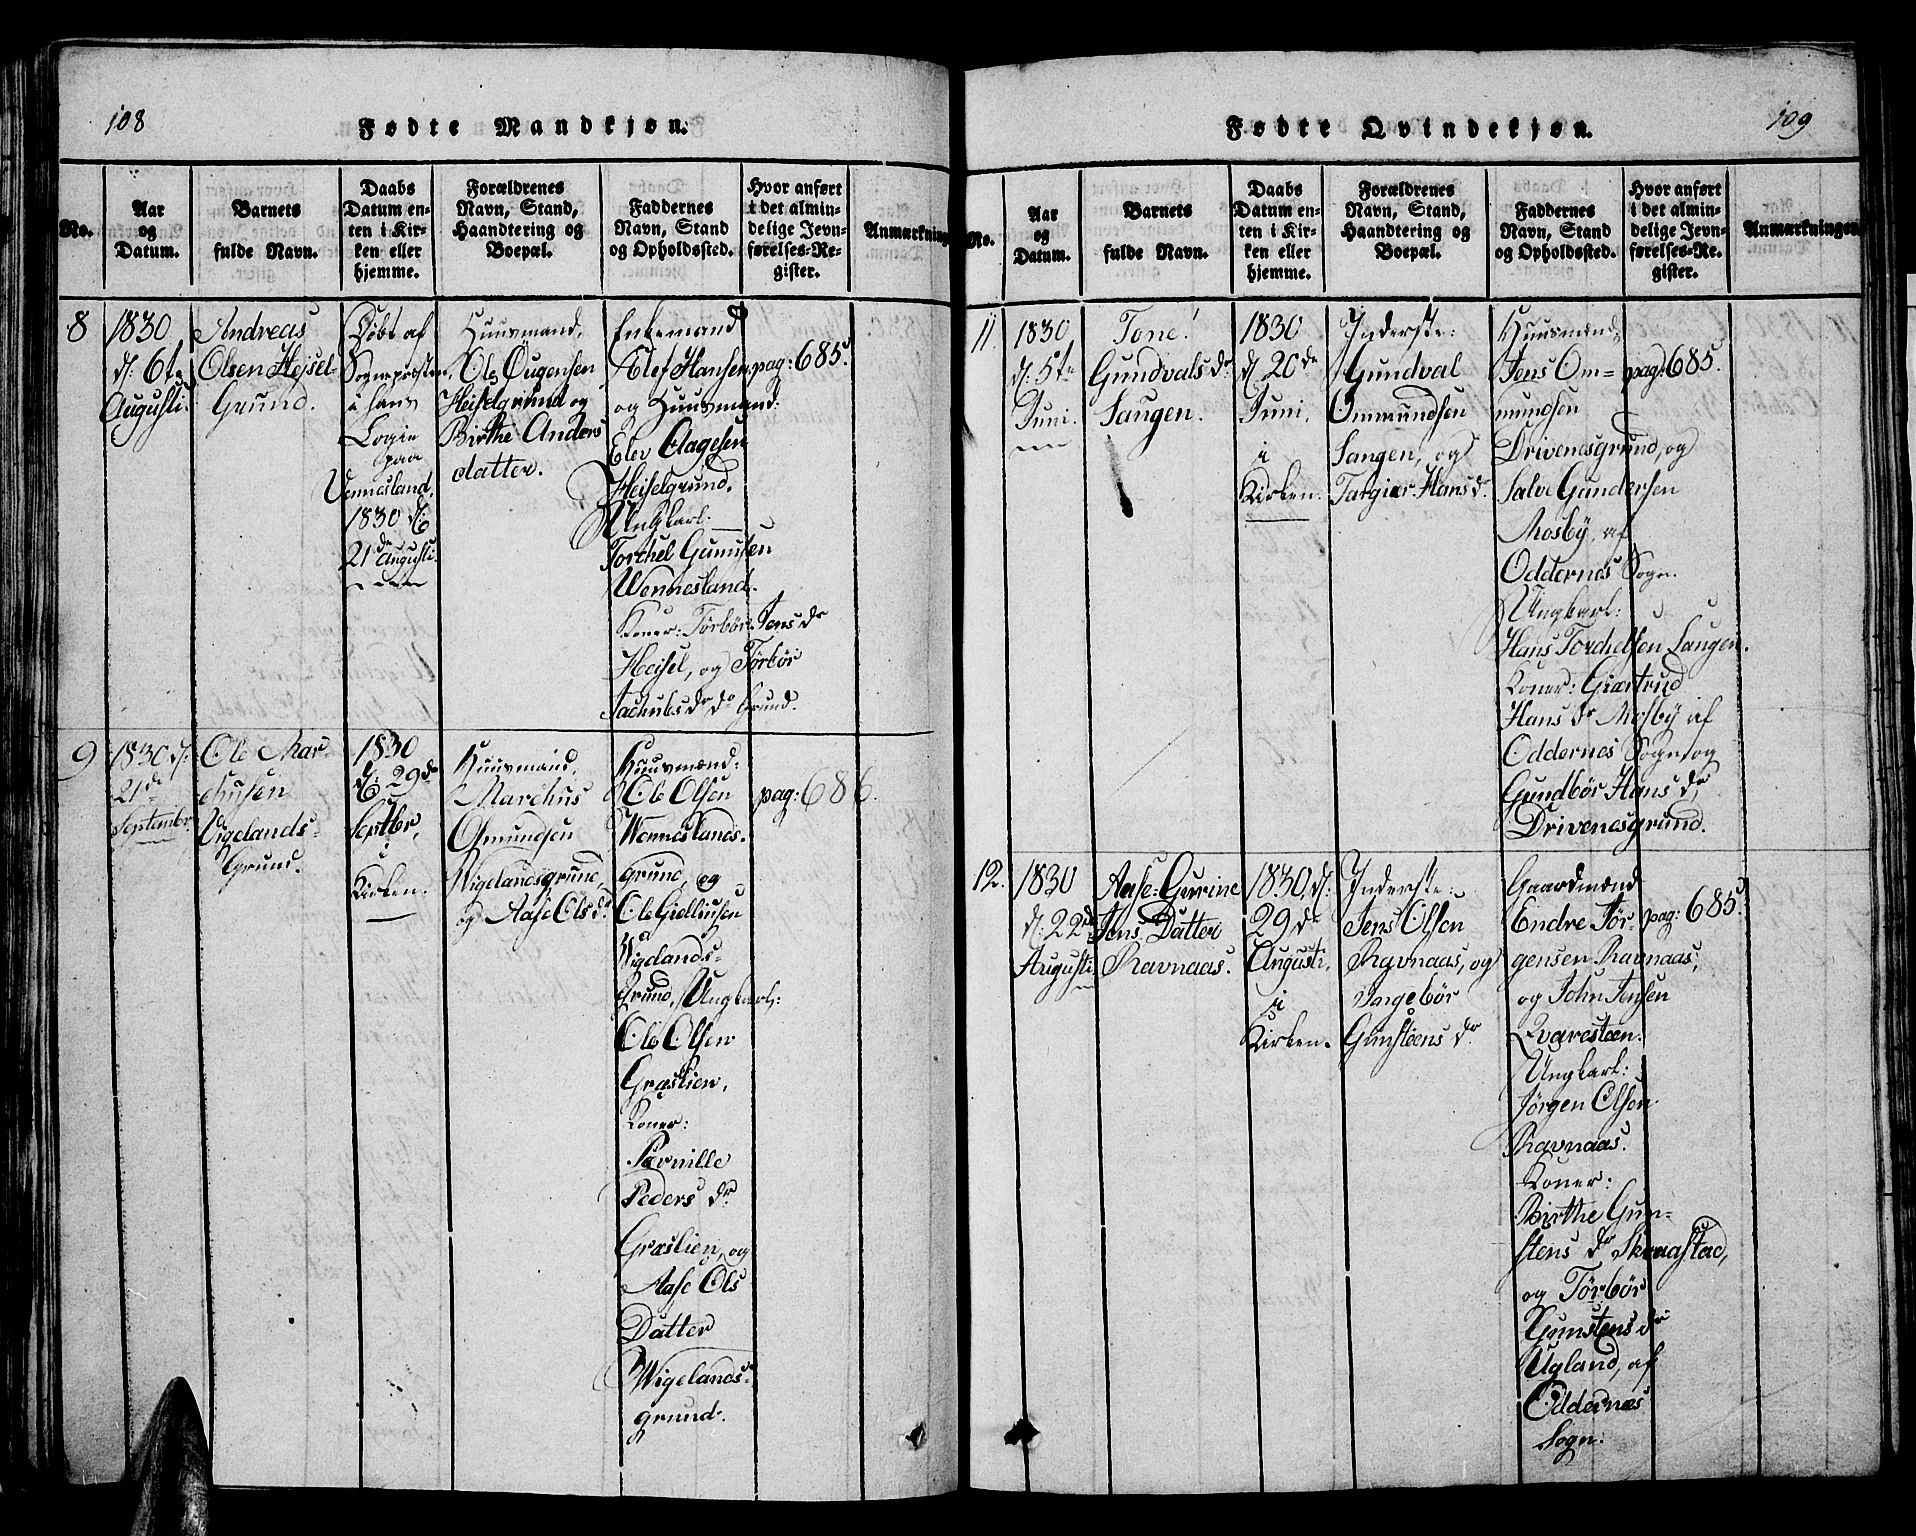 108
Fødte Mandkjøn.
No.
Aar
og
Datum.
Barnets
fulde Navn.
Daabs
Datum en-
ten i Kir-
ken eller
hjemme.
Forældrenes
Navn, Stand,
Haandtering og
Boepæl.
Faddernes
Navn, Stand
og Opholdssted.
Hvor anført
i det almin-
delige Jevn-
førelses-Re-
gister.
Anmærkning
8
1830
d: 6te
Augusti.
Andreas
Olsen Hejsel-
Grund.
Døbt af
Sogneprosten
i hans
Logie
paa
Vennesland,
1830 d:
21de Augusti.
Huusmand,
Ole Ougensen
Heiselgrund og
Birthe Anders
datter.
Enkemand
Elef Hansen
og Huusmand:
Elev Aagesen
Heiselgrund.
Ungkarl:
Torchel Gunusen
Wennesland.
Koner: Törbör Jens dr
Heisel, og Törbör
Jachubs dr do Grund.
pag: 685.
9
1830 d:
21de
Septembr.
Ole Mar-
chusen
Vigelands-
Grund.
1830
d: 29de
Septbr,
i
Kirken.
Huusmand,
Marchus
Osmundsen
Wigelandsgrund,
og Aase Ols dr
Huusmænd:
Ole Olsen
Wenneslands-
grund, og
Ole Gielliusen
Wigelands-
Grund, Ungkarl:
Ole Olsen
Græslien,
Koner:
Pernille
Peders dr.
Græslien, og
Aase Ols
Datter
Wigelands-
grund.
pag: 686.
109
Fødte Qvindekjøn.
No.
Aar
og
Datum.
Barnets
fulde Navn.
Daabs
Datum en-
ten i Kir-
ken eller
hjemme.
Forældrenes
Navn, Stand,
Haandtering og
Boepæl.
Faddernes
Navn, Stand
og Opholdssted.
Hvor anført
i det almin-
delige Jevn-
førelses-Re-
gister.
Anmærkninger
11
1830
d: 5te
Juni.
Tone
Gundvals dr
Saugen.
1830
d: 20de
Juni,
i
Kirken.
Inderste:
Gundval
Ommundsen
Saugen, og
Targier Hans dr
Huusmænd,
Jens Om-
mundsen
Drivenesgrund, og
Salve Gundersen
Mosby, af
Oddernes Sogn.
Ungkarl:
Hans Torchelsen Saugen.
Koner: Giærtrud
Hans dr Mosby af
Oddernes Sogn, og
Gundbör Hans dr
Drivenesgrund.
pag: 685.
12.
1830
d: 22de
Augusti.
Aase Gurine
Jens Datter
Ravnaas.
1830, d:
29de
Augusti,
i
Kirken.
Inderste:
Jens Olsen
Ravnaas, og
Targebör
Gunsteens dr.
Gaardmænd
Endre Jör-
gensen Ravnaas,
og John Jensen
Qvaresteen.
Ungkarl:
Jörgen Olsen
Ravnaas.
Koner:
Birthe Gun-
stens dr
og Törbör
Gunstens dr
Ugland, af
Oddernæs
Sogn.
pag: 685.